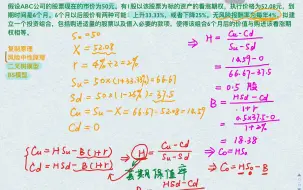 假设ABC公司的股票现在的市价为50元。有1股以该股票为标的资产的看涨期权，执行价格为52.08元，到
期时间是6个月。6个月以后股价有两种可能：上升33.33%，或者下降25%。无风险报酬率为每年4%。
建立一个投资组合，包括购进适量的股票以及借入必要的款项，使得该组合6个月后的价值与购进该看涨期
权相等。
复制原理
风险中性原理
二叉树模型
BS模型
S0 = 50
X = 52.08
r = 4% ÷ 2 = 2%
Su = 50×(1+33.33%) = 66.67
Sd = 50×(1-25%) = 37.5
Cu = Su - X = 66.67-52.08 = 14.59
Cd = 0
H = Cu-Cd / Su-Sd
= 14.59-0 / 66.67-37.5
= 0.5 股
B = HSd-Cd / 1+r
= 0.5×37.5-0 / 1+2%
= 18.38
C0 = HS0 - B
Cu = HSu - B(1+r)
Cd = HSd - B(1+r)
H = Cu-Cd / Su-Sd
套期保值率
HSd-Cd